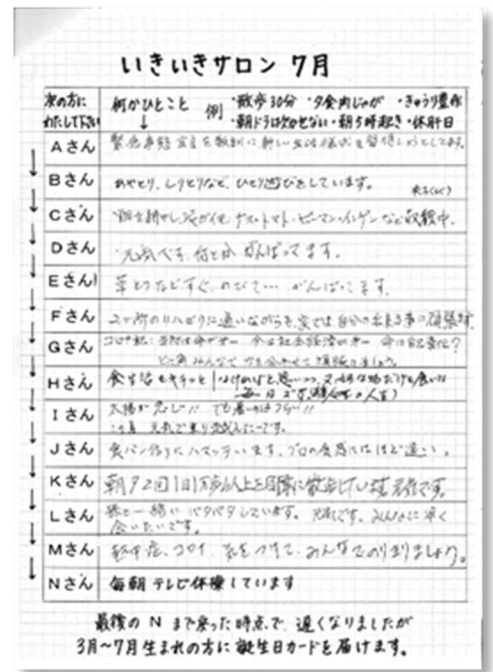 いきいきサロン 7月
次の方に
わたして下さい
何かひとこと 例 ・散歩30分 ・夕食肉じゃが ・きゅうり豊作
↓ ・朝ドラは欠かせない ・朝5時起き ・休肝日
Aさん 緊急事態宣言を教訓に新しい生活様式を習得しようとしてます。
Bさん あやとり、しりとりなど、ひとり遊びをしています。
Cさん ナス・トマト・ピーマン・インゲンなど収穫中。
Dさん 元気です。何とか がんばってます。
Eさん 草とりなどすぐ、のびて… がんばってます。
Fさん 2ヶ所のリハビリに通いながらも、家では自分の出来る事に頑張ってます
Gさん コロナ
みんなで力を合わせて頑張りましょう。
Hさん 食生活をキチッと しなければと思いつつ
Iさん 太陽が恋しい!! でも暑いのはつらい!!
元気で乗り越えたいです。
Jさん 食パン作りにハマっています。プロの食感にはほど遠い。
Kさん 朝夕2回1日1万歩以上を目標に散歩しています 元気です。
Lさん 孫と一緒にバタバタしています。元気です。みんなに早く
会いたいです。
Mさん 熱中症、コロナ、気をつけて、みんなでのりきりましょう。
Nさん 毎朝 テレビ体操しています
最後の N まで戻った時点で、遅くなりましたが
3月~7月生まれの方に誕生日カードを届けます。